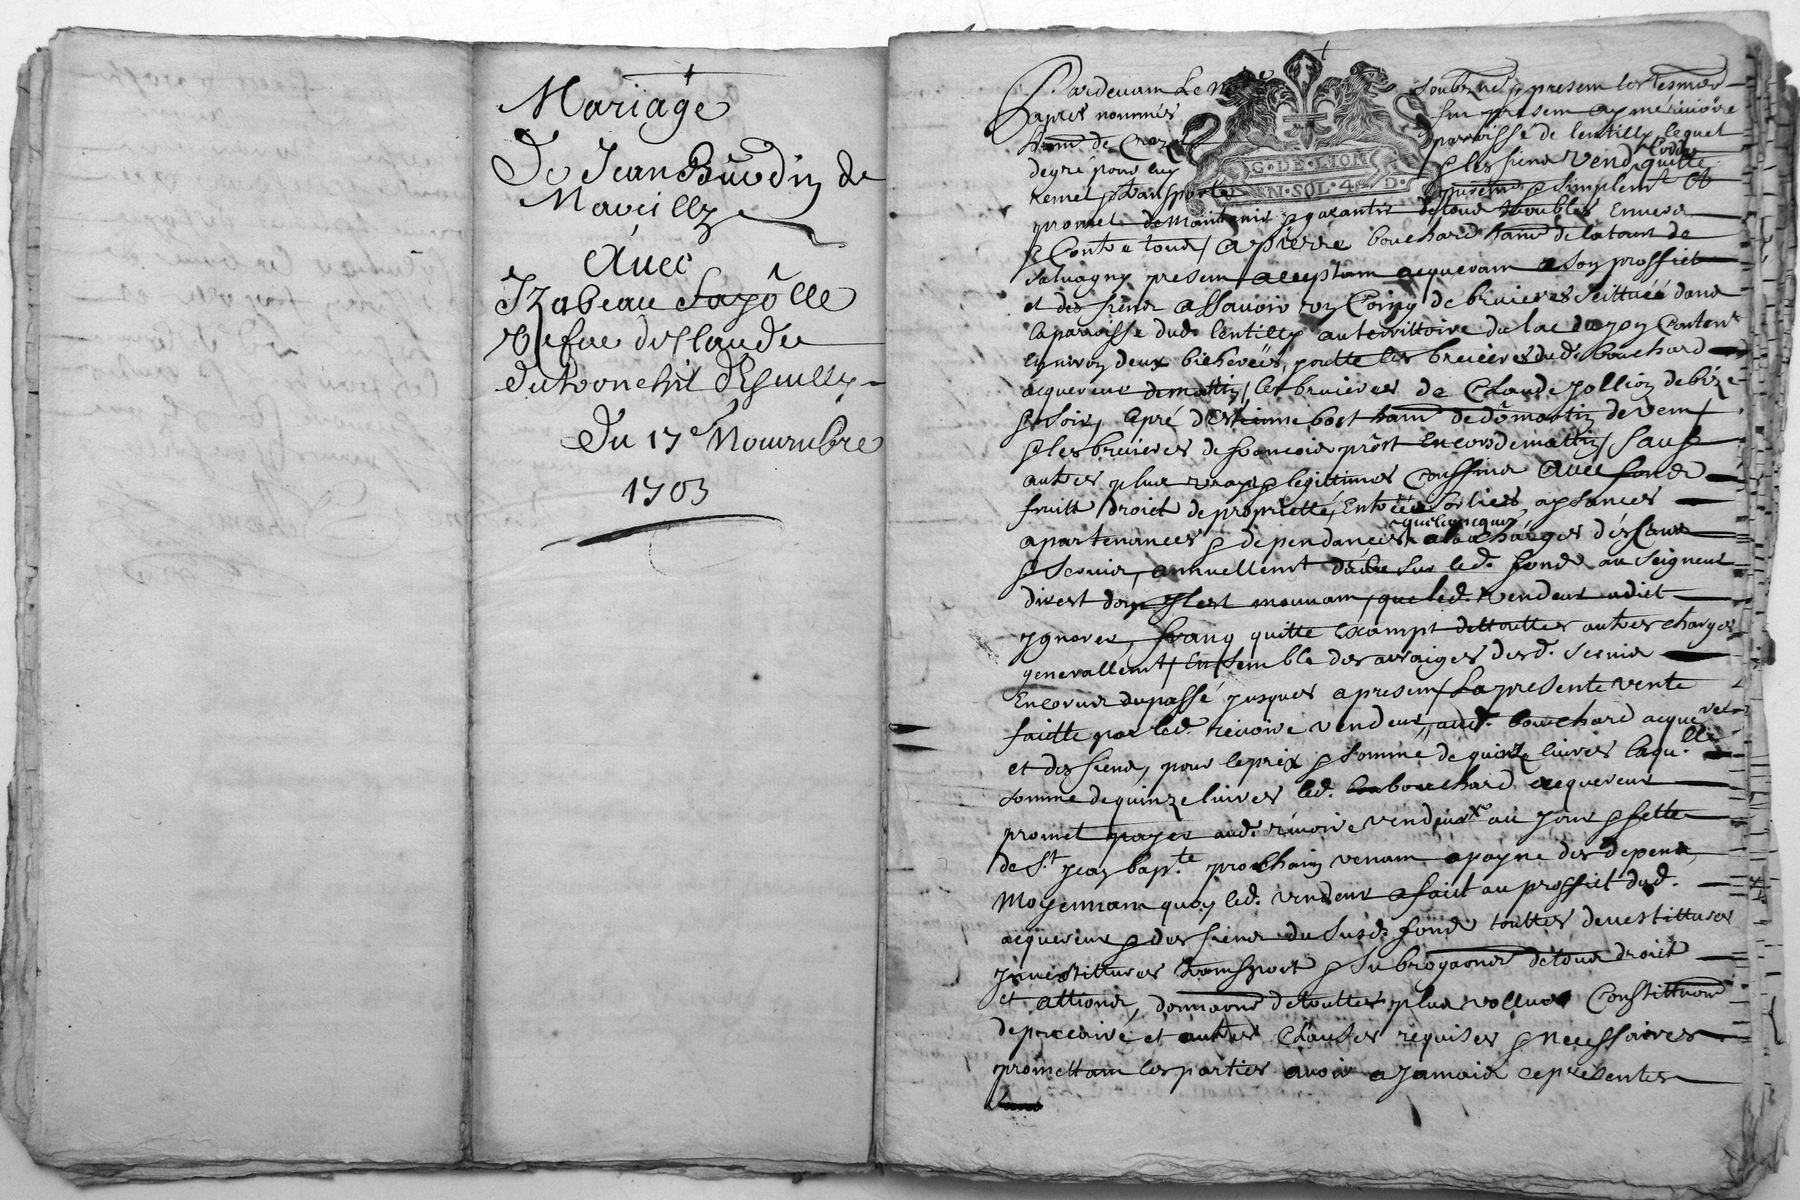 Mariage
De Jean Burdin de
Marcilly
Avec
Izabeau Fayolle
Vefue de Claude
Dutronchil d'Escully
Du 17e Nouembre
1703
Pardeuant Le nore soubzne & presens les tesmoins
apres nommés fut present Aymé riuoire
hant de paroisse de lentilly lequel
de gré pour luy & les siens vend, cedde, quitte
remet & transporte puremt & simplemt Et
promet de maintenir & garantir de tous troubles Enuers
& Contre tous / a pierre bouchard hant de la tour de
saluagny present acceptant acquerant a son proffict
et des siens assauoir un Coing de bruieres scittuée dans
la parroisse dud. lentilly au territtoire du lac Conten.t
Enuiron deux bicherées, joutte les bruieres dud. bouchard
acquereur de mattin / les bruieres de Claude jollion de bize
& soir, le pré d'Estienne bost hant de domartin de vent
& les bruieres de francois prost Encors de mattin / sauf
autres plus vrays & legittimes Conffins Avec fonds
fruitt droict de proprietté, Entrées, sorties, aysances
apartenances & dependances quelconques, a la Charges des Cens
& seruis, annuellemt dubs sur led. fonds au seigneur
direct dont Il est mouuant, que led. vendeur a dict
ygnorer, franq quitte Exampt de touttes autres charges
generallemt, Ensemble des arraiges desd. seruis
Encorus du passé jusques a present / La presente vente
faicte par led. riuoire vendeur, aud. bouchard acquereur
et des siens, pour le prix & somme de quinze liures laqu.lle
somme de quinze liures led. bouchard acquereur
promet payer aud. riuoire vendeur au jour & feste
de St jean bap.te prochain venant a payne des depens
Moyennant quoy led. vendeur a faict au proffict dud.
acquereur & des siens du susd. fonds touttes deuestittures
jnuestittures transport & subrogaons de tous droict
et attions, donnaons de touttes plus vallues Constittuons
de precaire et autres Clauses requises & necessaires
promettant les parties avoir a jamais ce presentes